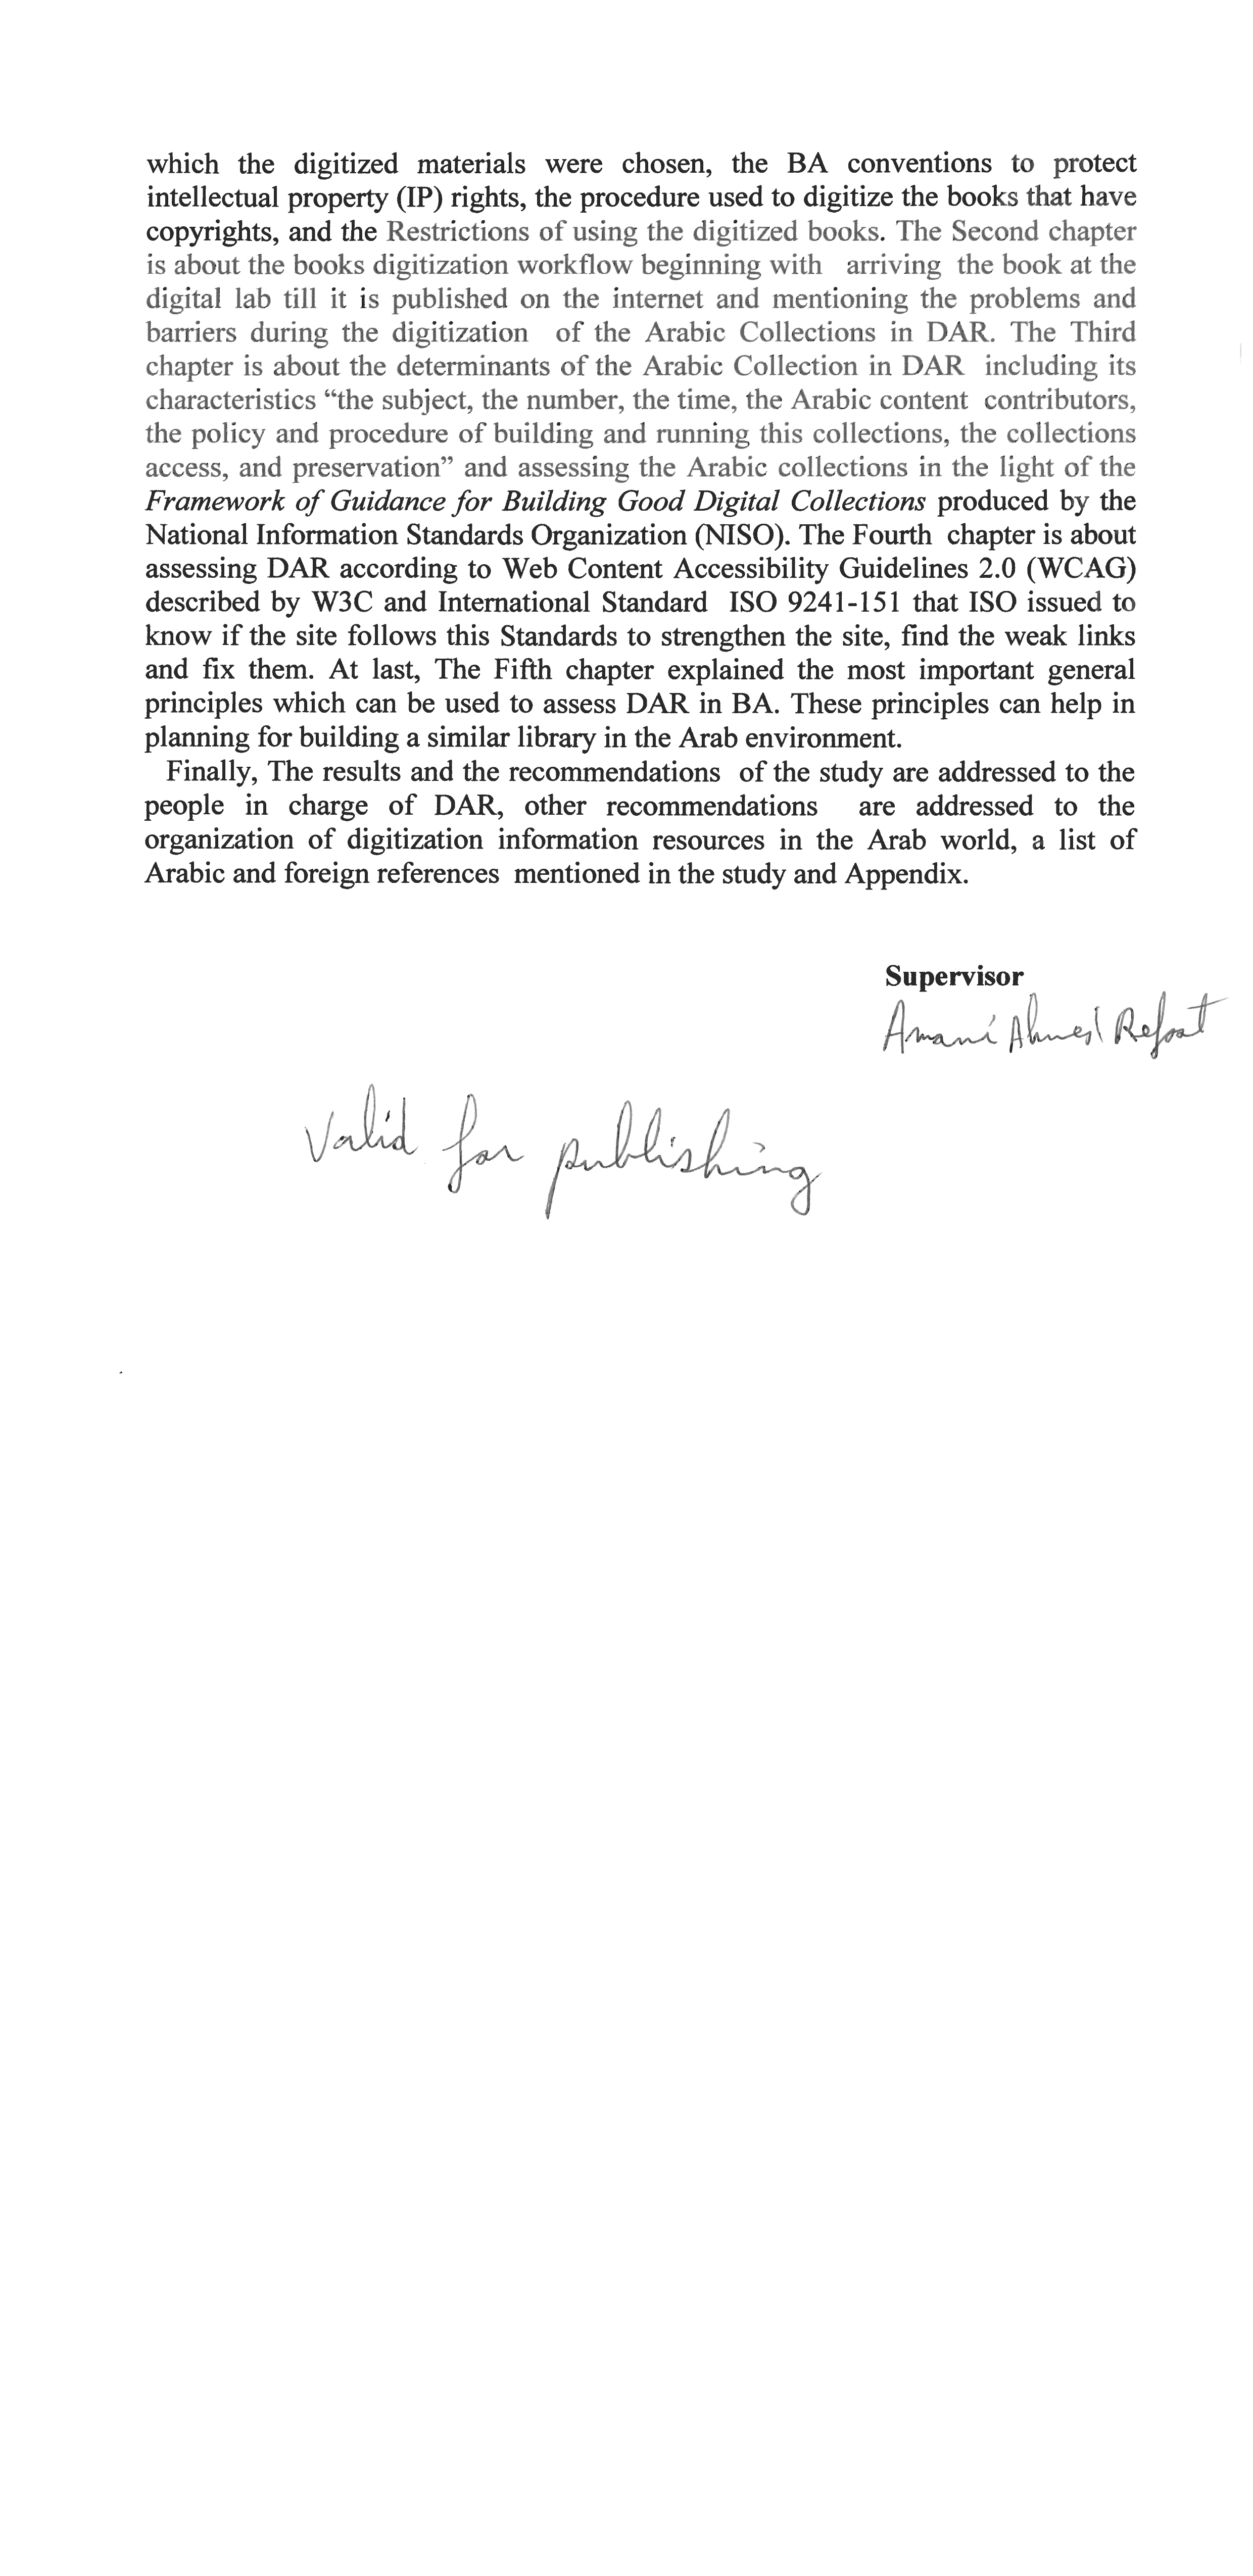 which the digitized materials were chosen, the BA conventions to protect
intellectual property (IP) rights, the procedure used to digitize the books that have
copyrights, and the Restrictions of using the digitized books. The Second chapter
is about the books digitization workflow beginning with arriving the book at the
digital lab till it is published on the internet and mentioning the problems and
barriers during the digitization of the Arabic Collections in DAR. The Third
chapter is about the determinants of the Arabic Collection in DAR including its
characteristics “the subject, the number, the time, the Arabic content contributors,
the policy and procedure of building and running this collections, the collections
access, and preservation” and assessing the Arabic collections in the light of the
Framework of Guidance for Building Good Digital Collections produced by the
National Information Standards Organization (NISO). The Fourth chapter is about
assessing DAR according to Web Content Accessibility Guidelines 2.0 (WCAG)
described by W3C and International Standard ISO 9241-151 that ISO issued to
know if the site follows this Standards to strengthen the site, find the weak links
and fix them. At last, The Fifth chapter explained the most important general
principles which can be used to assess DAR in BA. These principles can help in
planning for building a similar library in the Arab environment.
Finally, The results and the recommendations of the study are addressed to the
people in charge of DAR, other recommendations are addressed to the
organization of digitization information resources in the Arab world, a list of
Arabic and foreign references mentioned in the study and Appendix.
Supervisor
Amani Ahmed Refaat
Valid for publishing